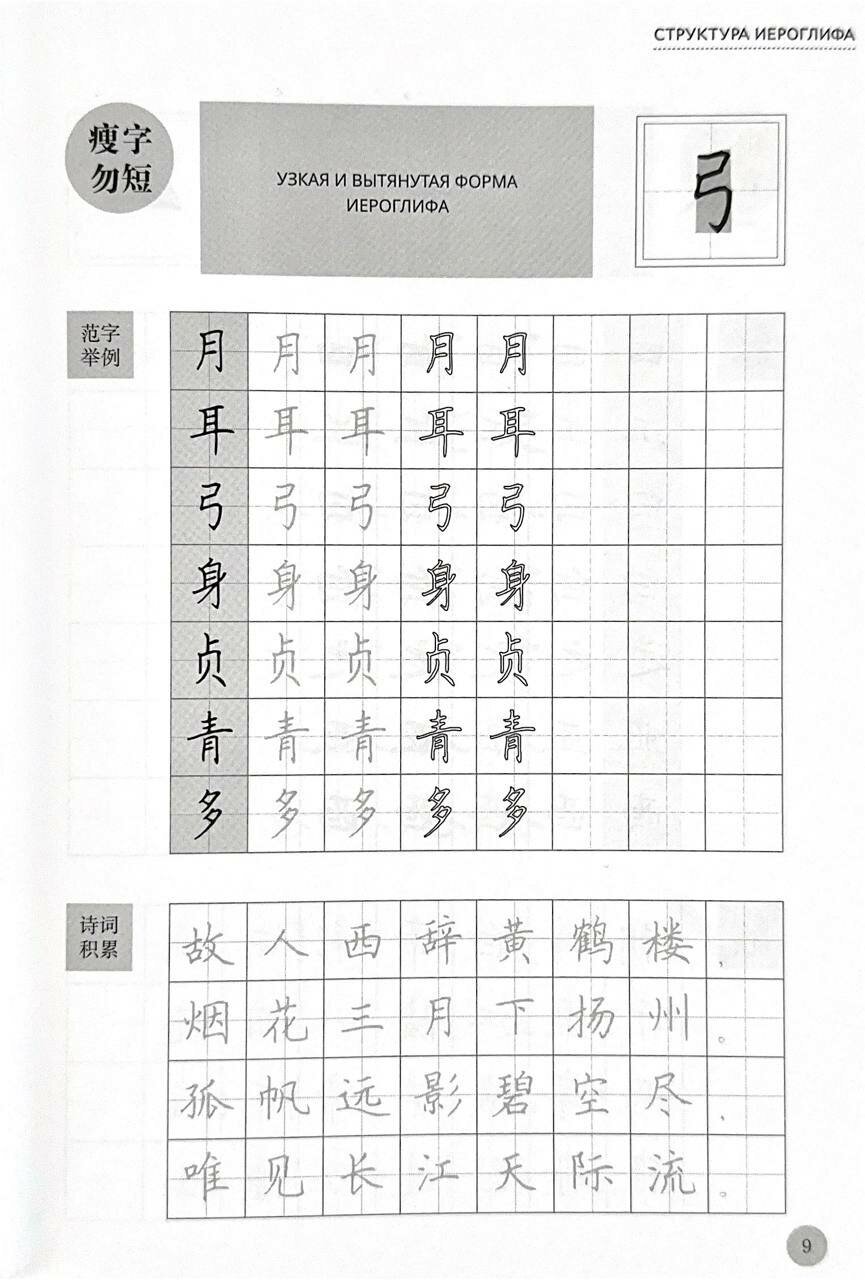 СТРУКТУРА ИЕРОГЛИФА
瘦字
勿短
УЗКАЯ И ВЫТЯНУТАЯ ФОРМА
ИЕРОГЛИФА
弓
范字
举例
月 月 月 月 月
耳 耳 耳 耳 耳
弓 弓 弓 弓 弓
身 身 身 身 身
贞 贞 贞 贞 贞
青 青 青 青 青
多 多 多 多 多
诗词
积累
故人西辞黄鹤楼，
烟花三月下扬州。
孤帆远影碧空尽，
唯见长江天际流。
9